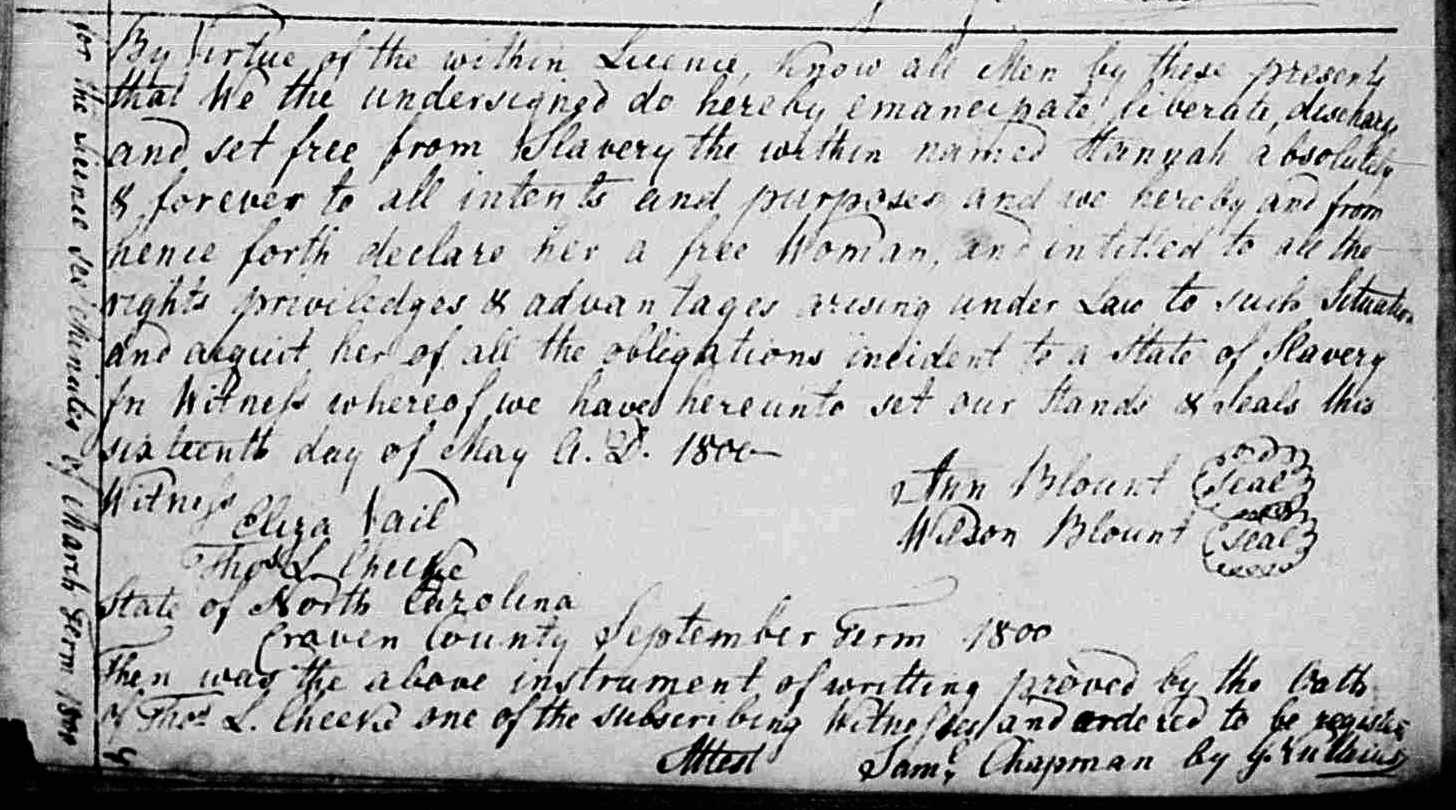 By Virtue of the within Licence, Know all Men by these presents
that We the undersigned do hereby emancipate, liberate, discharge
and set free from Slavery the within named Hannah absolutely
& forever to all intents and purposes and we hereby and from
hence forth declare her a free Woman, and intitled to all the
rights priviledges & advantages arising under Law to such Situation
and acquit her of all the obligations incident to a State of Slavery
In Witness whereof we have hereunto set our Hands & Seals this
sixteenth day of May A. D. 1800
Ann Blount (Seal)
Witness
Eliza Vail
Wilson Blount (Seal)
Thos. L. Cheeke
State of North Carolina
Craven County September Term 1800
Then was the above instrument of writting proved by the Oath
of Thos. L. Cheeke one of the subscribing Witnesses and ordered to be register
Attest Saml. Chapman by
for the Licence see Minutes of March Term 1800